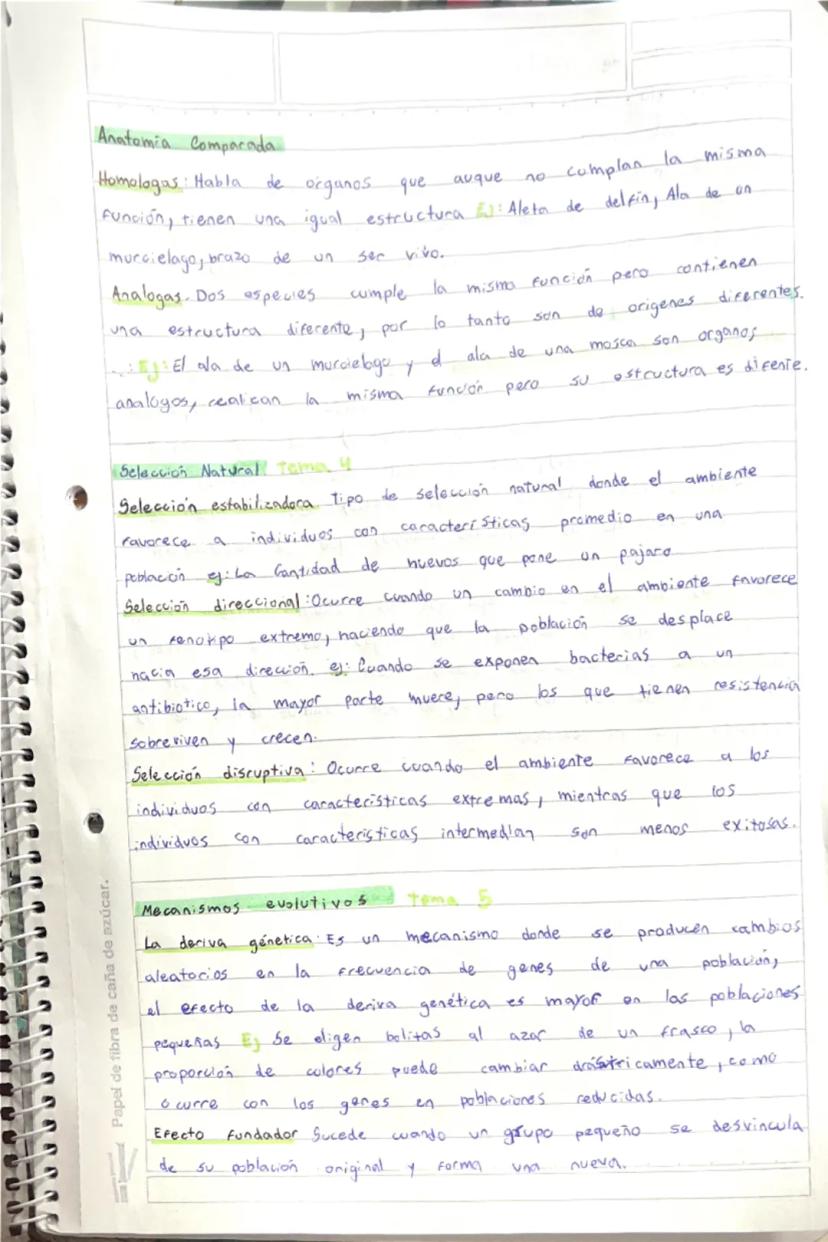 Anatomia Comparada
Homologas: Habla de organos que auque no cumplan la misma
función, tienen una igual estructura Ej: Aleta de delfin, Ala de un
murcielago, brazo de un ser vivo.
Analogas. Dos especies cumple la misma función pero contienen
una estructura diferente, por lo tanto son de origenes diferentes.
Ej: El ala de un murcielago y el ala de una mosca son organos
analogos, realizan la misma función pero su estructura es difente.
Selección Natural Tema 4
Selección estabilizadora Tipo de selección natural donde el ambiente
favorece a individuos con características promedio en una
población ej: La Cantidad de huevos que pone un pajaro
Selección direccional: Ocurre cuando un cambio en el ambiente favorece
un fenotipo extremo, haciendo que la población se desplace
hacia esa direción. ej: Cuando se exponen bacterias a un
antibiotico, la mayor parte muere, pero los que tienen resistencia
sobreviven y crecen.
Selección disruptiva: Ocurre cuando el ambiente favorece a los
individuos con características extremas, mientras que los
individuos con caracteristicas intermedian son menos exitosas.
Mecanismos evolutivos Tema 5
La deriva génetica. Es un mecanismo donde se producen cambios
aleatorios en la frecuencia de genes de una población,
el efecto de la deriva genética es mayor en las poblaciones
pequeñas Ej Se eligen bolitas al azar de un frasco, la
proporción de colores puede cambiar drásticamente, como
ocurre con los genes en poblaciones reducidas.
Efecto fundador Sucede cuando un grupo pequeño se desvincula
de su población original y forma una nueva.
Papel de fibra de caña de azúcar.